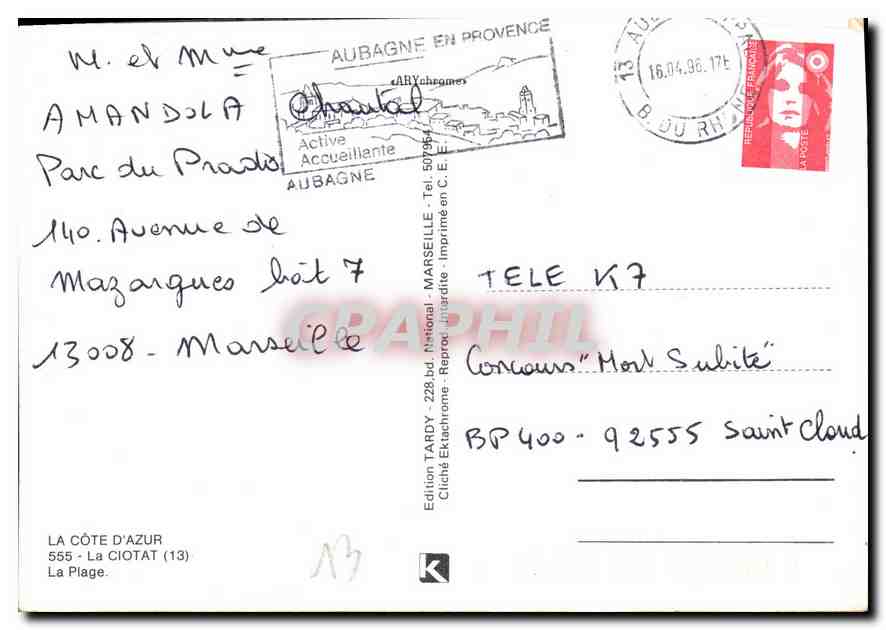 M. et Mme
AMANDOLA Chantal
Parc du Prado
140. Avenue de
Mazargues bât 7
13008 - Marseille
AUBAGNE EN PROVENCE
«ARYchrome»
Active
Accueillante
AUBAGNE
16.04.96.17
B. DU RHONE
REPUBLIQUE FRANÇAISE
LA POSTE
Edition TARDY - 228, bd. National - MARSEILLE - Tel. 507954
Cliché Ektachrome - Reprod. Interdite - Imprimé en C. E. E.
TELE K7
Concours "Mort Subite"
BP 400 - 92555 Saint Cloud
CPAPHIL
LA CÔTE D'AZUR
555 - La CIOTAT (13)
La Plage.
13
K